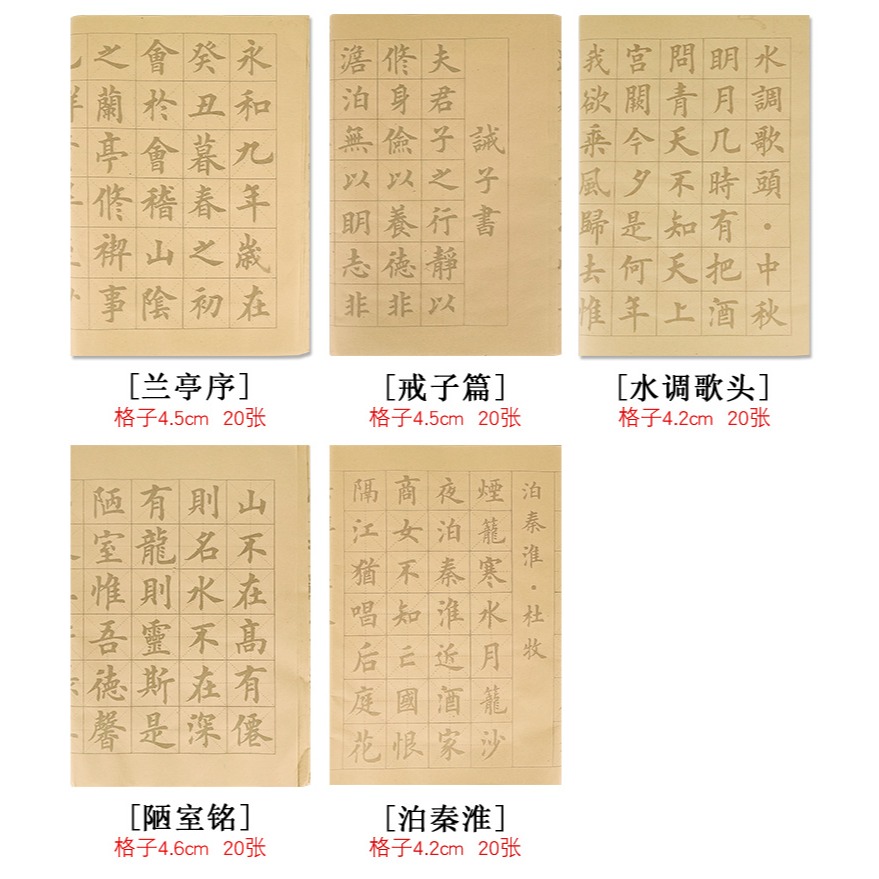 永和九年歲在
癸丑暮春之初
會於會稽山陰
之蘭亭脩禊事
[兰亭序]
格子4.5cm 20张
誡子書
夫君子之行靜以
脩身儉以養德非
澹泊無以明志非
[戒子篇]
格子4.5cm 20张
水調歌頭·中秋
明月几時有把酒
問青天不知天上
宮闕今夕是何年
我欲乘風歸去惟
[水调歌头]
格子4.2cm 20张
山不在高有僊
則名水不在深
有龍則靈斯是
陋室惟吾德馨
[陋室铭]
格子4.6cm 20张
泊秦淮·杜牧
煙籠寒水月籠沙
夜泊秦淮近酒家
商女不知亡國恨
隔江猶唱后庭花
[泊秦淮]
格子4.2cm 20张